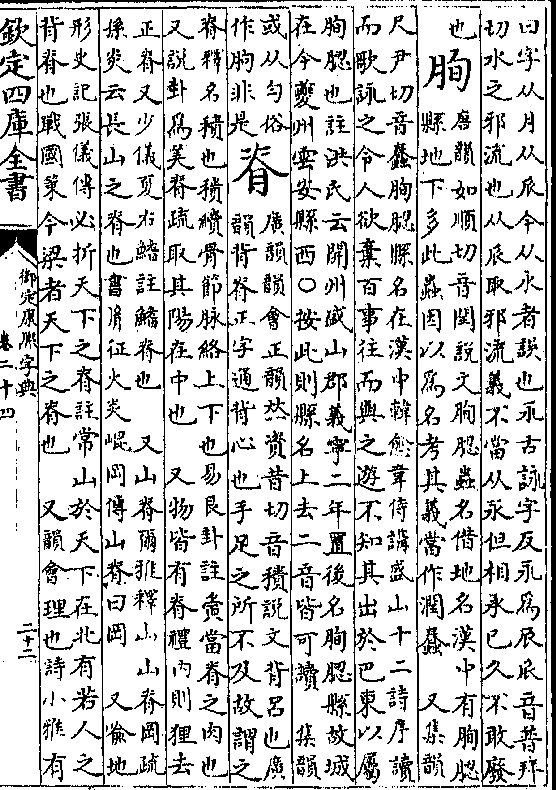 曰字从月从𠂢今从永者誤也永古詠字反永爲𠂢𠂢音普拜
切水之邪流也从𠂢取邪流義不當从永但相承已久不敢廢
也
朐
唐韻如順切音閏說文朐䏰蟲名借地名漢中有朐䏰
縣地下多此蟲因以爲名考其義當作潤蠢　又集韻
尺尹切音蠢朐䏰縣名在漢中韓愈韋侍講盛山十二詩序讀
而歌詠之令人欲棄百事往而與之遊不知其出於巴東以屬
朐䏰也註洪氏云開州盛山郡義寧二年置後名朐䏰縣故城
在今夔州雲安縣西○按此則縣名上去二音皆可讀　集韻
或从匀俗
作朐非是
脊
廣韻韻會正韻𠀤資昔切音積說文背呂也廣
韻背脊正字通背心也手足之所不及故謂之
脊釋名積也積續骨節脉絡上下也易艮卦註夤當脊之肉也
又說卦爲美脊疏取其陽在中也　又物皆有脊禮內則狸去
正脊又少儀夏右鰭註鰭脊也　又山脊爾雅釋山山脊岡疏
孫炎云長山之脊也書胤征火炎崐岡傳山脊曰岡　又喻地
形史記張儀傳必折天下之脊註常山於天下在北有若人之
背脊也戰國策今梁者天下之脊也　又韻會理也詩小雅有
欽定四庫全書
御定康熙字典
卷二十四
二十二